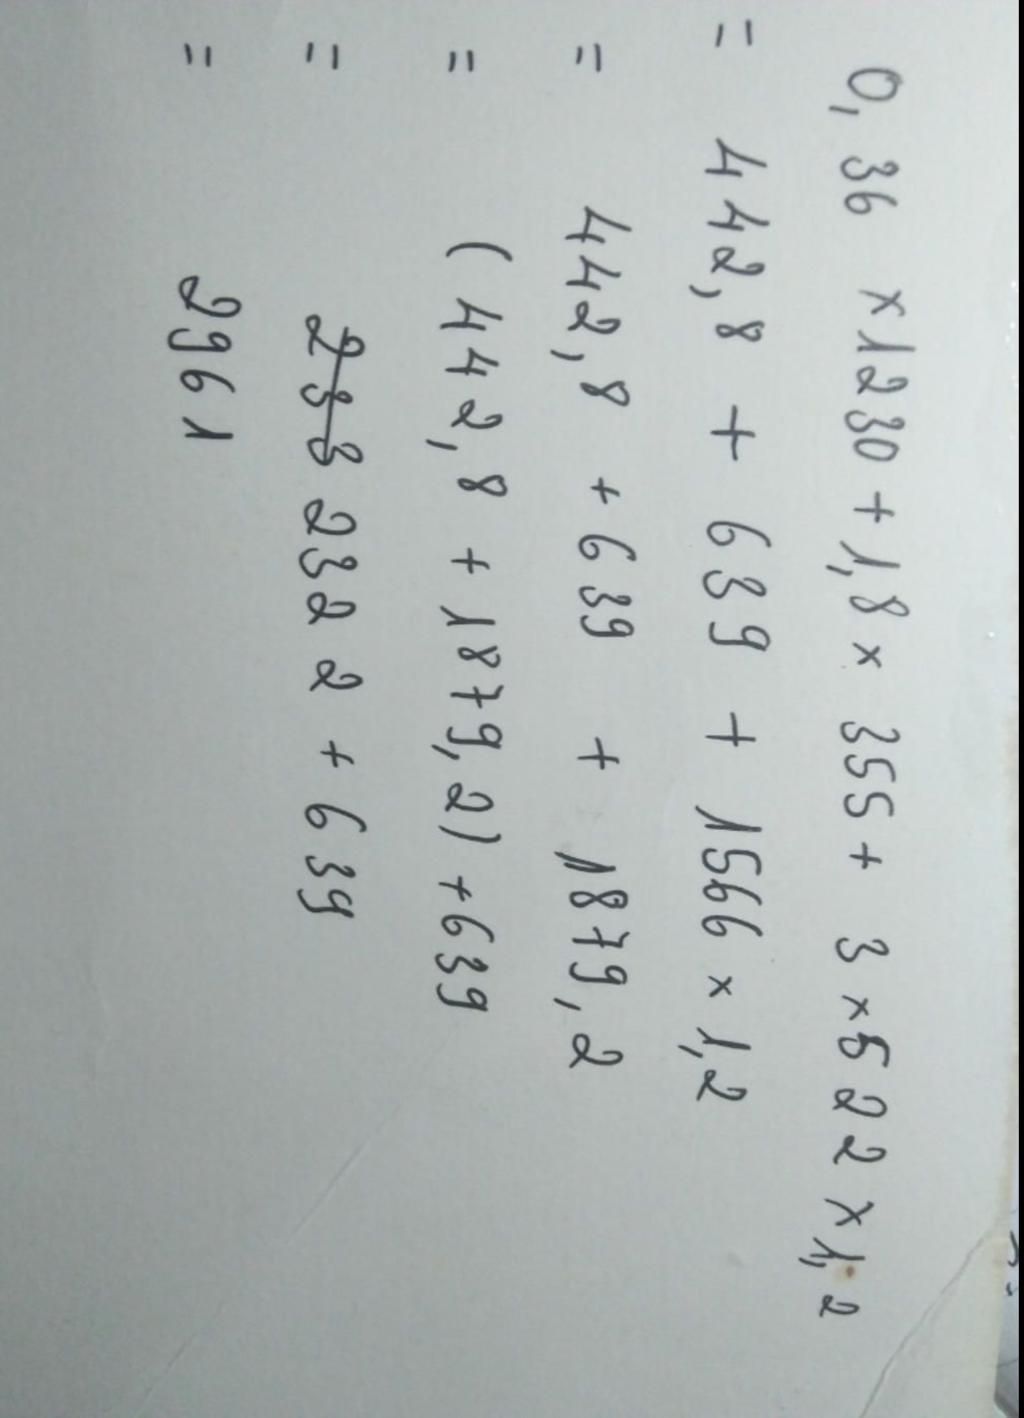 0,36 ×1230 + 1,8 × 355 + 3 ×522 × 1,2
= 442,8 + 639 + 1566 × 1,2
= 442,8 + 639 + 1879,2
= (442,8 + 1879,2) + 639
= 233 2322 + 639
= 2961